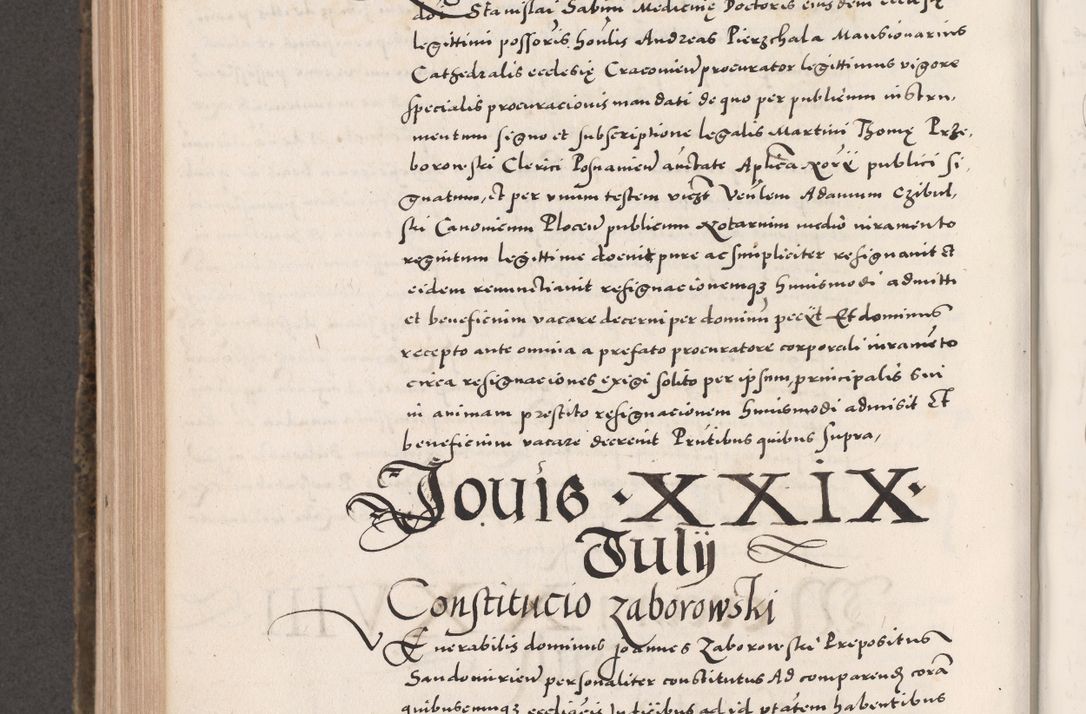 Stanislai Sabini Medicinę Doctoris eiusdem ecclesię
legittimi possoris honlis Andreas Pierzchala Mansionarius
Cathedralis ecclesię Cracovien procurator legittimus vigore
specialis procuracionis mandati de quo per publicum instru,
mentum signo et subscriptione legalis Martini Thomę Prze,
borowski Clerici Posnanien auctate Aplica Norÿ publici si,
gnatum, et per vnum testem vidzt Venlem Adamum Czibul,
ski Canonicum Plocen publicum Notarium medio iuramento
requitum legittime docuit pure ac simpliciter resignauit et
eidem renunctiauit resignacionemqz huiusmodi admitti
et beneficium vacare decerni per dominum peciit Et dominus
recepto ante omnia a prefato procuratore corporali iuramēto
circa resignaciones exigi solito per ipsum, principalis sui
in animam prestito resignacionem huiusmodi admisit Et
beneficium vacare decreuit Prntibus quibus supra,
Jouis · XXIX ·
Julij
Constitucio Zaborowski
Venerabilis dominus Joannes Zaborowski Prepositus
Sandomirien personaliter constitutus Ad comparend corā
quibuscumqz ecclicis Judicibus ad id ptatem habentibus